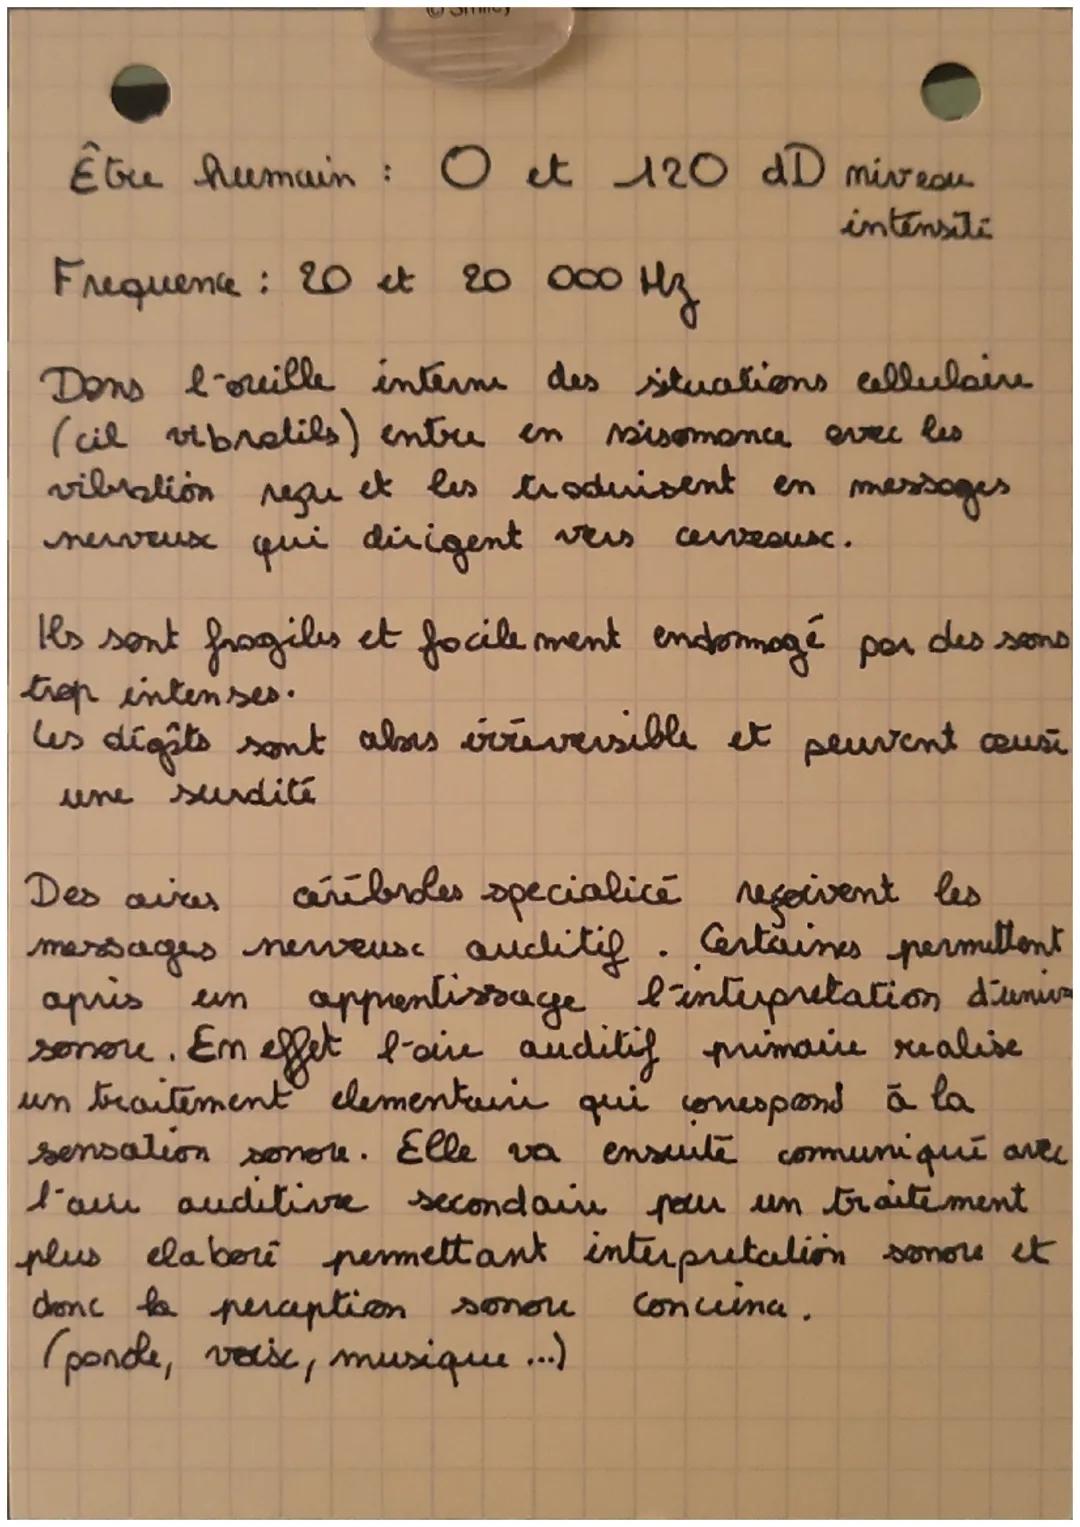 © Smiley
Être humain : 0 et 120 dD niveau
intensité
Frequence : 20 et 20 000 Hz
Dans l'oreille interne des situations cellulaire
(cil vibratils) entre en résonance avec les
vibration reçu et les traduisent en messages
nerveux qui dirigent vers cerveaux.
Ils sont fragiles et facilement endommagé par des sons
trop intenses.
Les dégâts sont alors irréversible et peuvent causé
une surdité
Des aires cérébrales specialicé reçoivent les
messages nerveux auditif. Certaines permettent
après un apprentissage l'interpretation d'univ
sonore. En effet l'aire auditif primaire realise
un traitement elementaire qui correspond à la
sensation sonore. Elle va ensuite communiqué avec
l'aire auditive secondaire pour un traitement
plus elaboré permettant interpretation sonore et
donc la perception sonore
(parole, voix, musique ...)